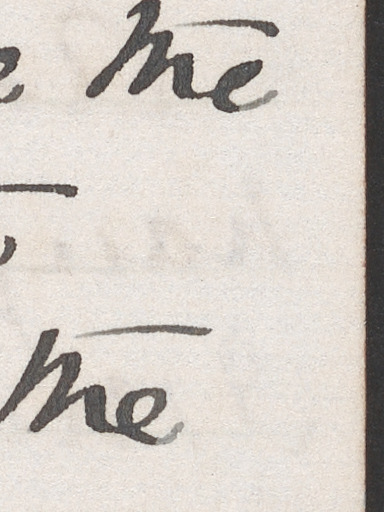 the
the